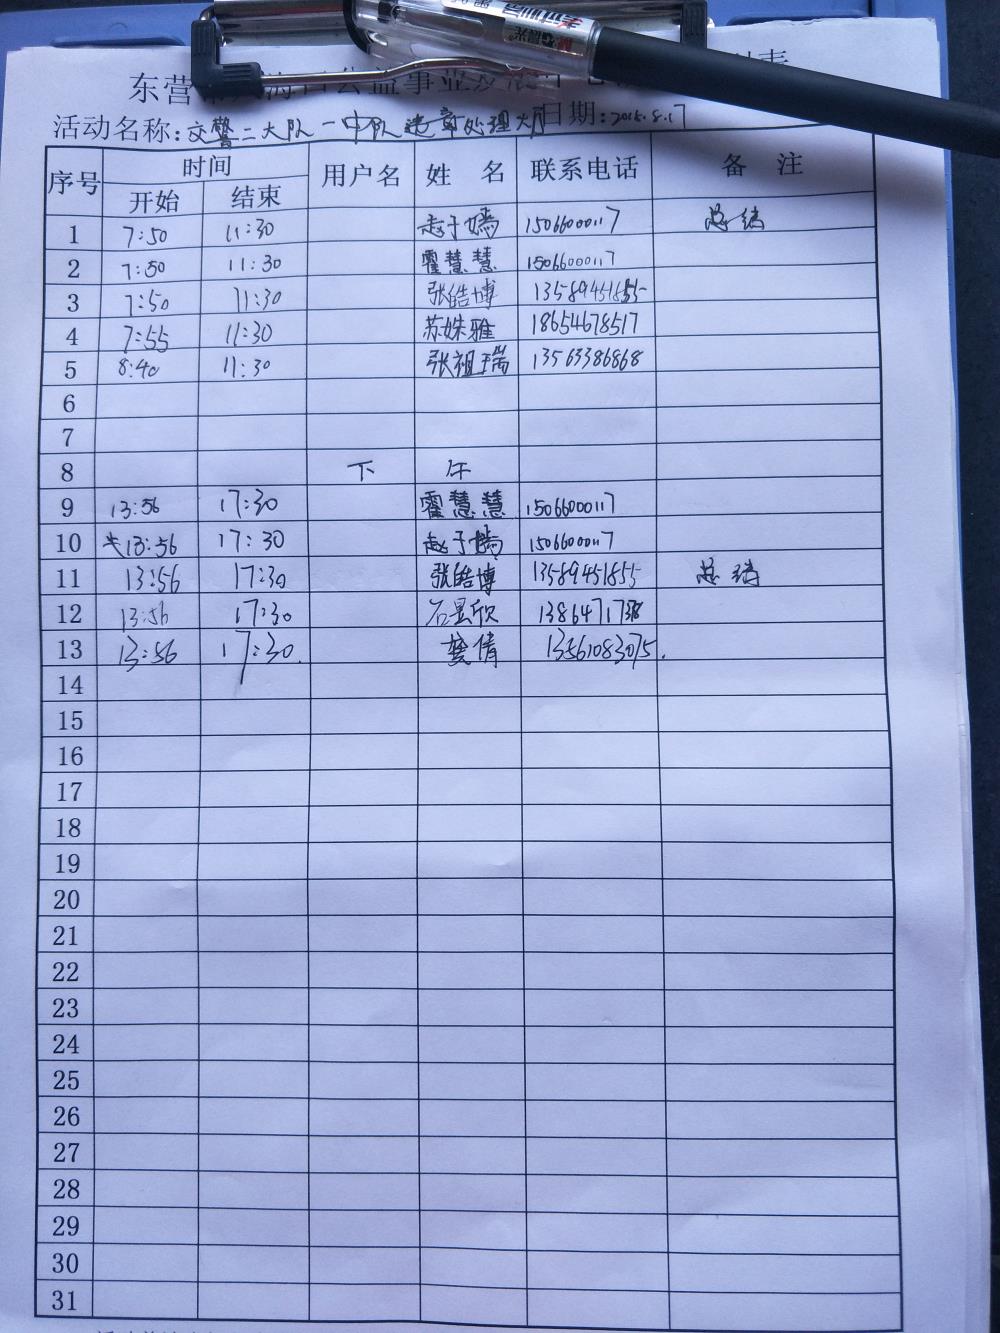 东营
公益事业发展中心
活动名称:交警二大队一中队违章处理大厅 日期:2018.8.17
序号 时间 用户名 姓名 联系电话 备注
开始 结束
1 7:50 11:30 赵子嫣 15066000117 总结
2 7:50 11:30 霍慧慧 15066000117
3 7:50 11:30 张皓博 13589451855
4 7:55 11:30 苏姝雅 18654678517
5 8:40 11:30 张祖瑞 13563386868
6
7
8 下午
9 13:56 17:30 霍慧慧 15066000117
10 13:56 17:30 赵子嫣 15066000117
11 13:56 17:30 张皓博 13589451855 总结
12 13:56 17:30 石昊欣
13 13:56 17:30 龚倩 13561083075
14
15
16
17
18
19
20
21
22
23
24
25
26
27
28
29
30
31